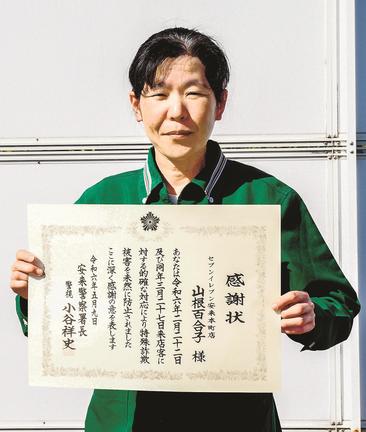 感謝状
セブンイレブン安来本町店
山根百合子 様
あなたは令和六年二月二十二日
及び同年三月二十七日来店客に
対する的確な対応により特殊詐欺
被害を未然に防止されました
ここに深く感謝の意を表します
令和六年五月九日
安来警察署長
警視 小谷祥史